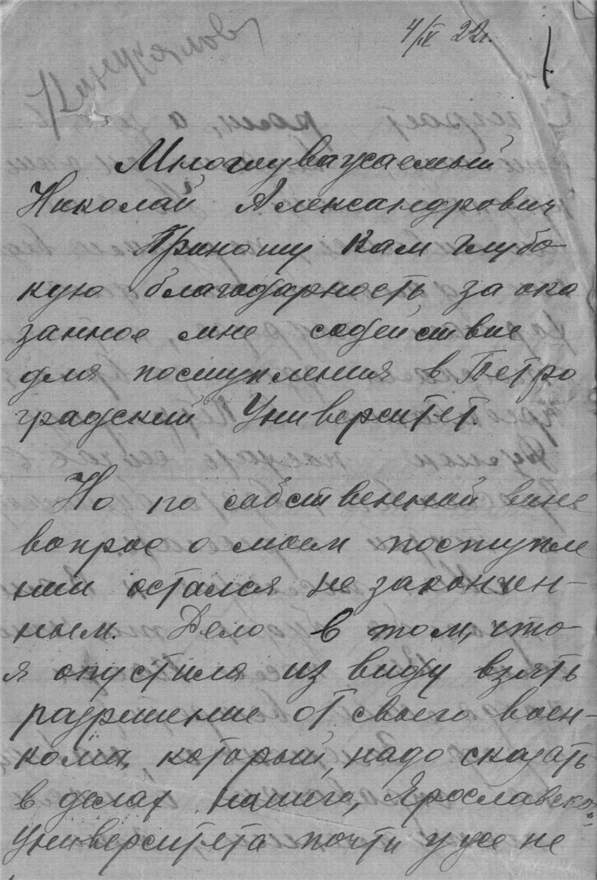 4/IV 22г.
Многоуважаемый
Николай Александрович
Приношу Вам глубо-
кую благодарность за ока
занное мне содействие
для поступления в Петро
градский Университет.
Но по собственной вине
вопрос о моем поступле
нии остался не закончен-
ным. Дело в том, что
я опустила из виду взять
разрешение от своего воен-
кома, который, надо сказать
в делах нашего, Ярославского
Университета почти уже не